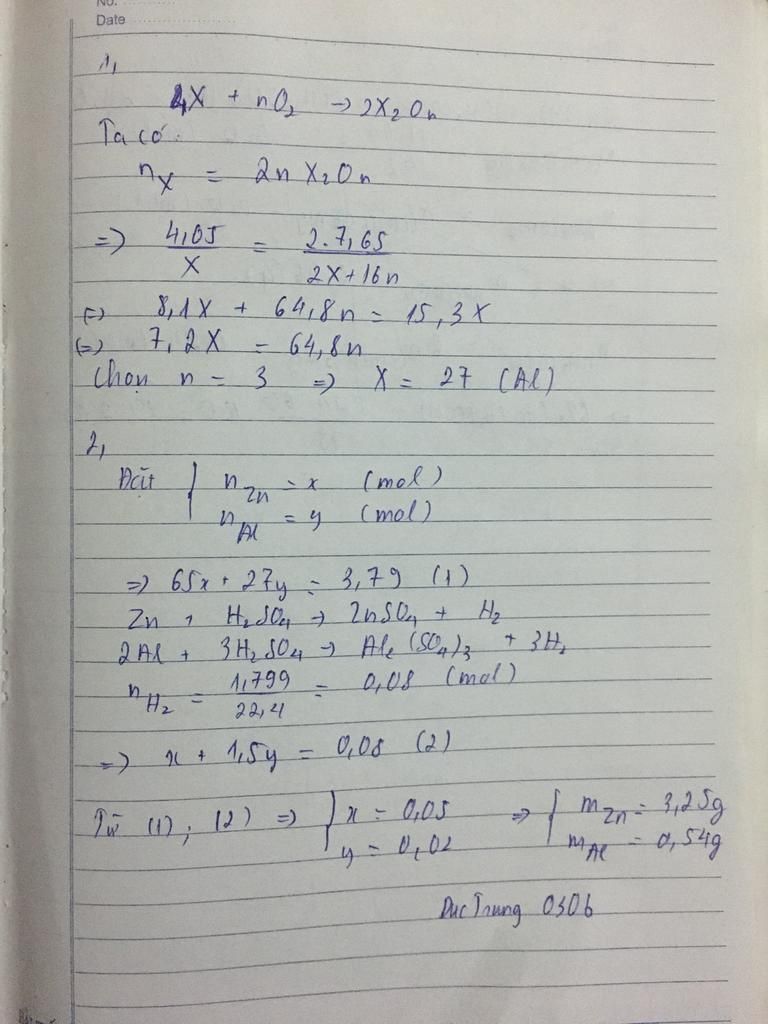 No.
Date
1,
4X + nO2 → 2X2On
Ta có:
nX = 2n X2On
=> 4,05/X = 2.7,65/2X+16n
(=) 8,1X + 64,8n = 15,3X
(=) 7,2X = 64,8n
Chọn n = 3 => X = 27 (Al)
2,
Đặt { nZn = x (mol)
nAl = y (mol)
=> 65x + 27y = 3,79 (1)
Zn + H2SO4 → ZnSO4 + H2
2Al + 3H2SO4 → Al2(SO4)3 + 3H2
nH2 = 1,799/22,4 = 0,08 (mol)
=> x + 1,5y = 0,08 (2)
Từ (1), (2) => { x = 0,05 => { mZn = 3,25g
y = 0,02 mAl = 0,54g
Đức Trung 0306